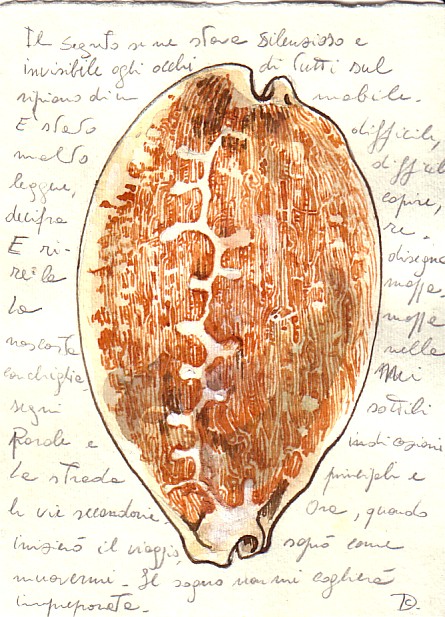 Il segreto se ne stava silenzioso e
invisibile agli occhi di tutti sul
ripiano di un mobile.
È stato difficile,
molto difficile
leggere, capire,
decifra re.
E ri- disegna
re la mappa.
La mappa
nascosta nella
conchiglia. Mi
segni sottili
Parole e indicazioni
Le strade principali e
le vie secondarie. Ora, quando
inizierò il viaggio, saprò come
muovermi. Il sogno non mi coglierà
impreparata.